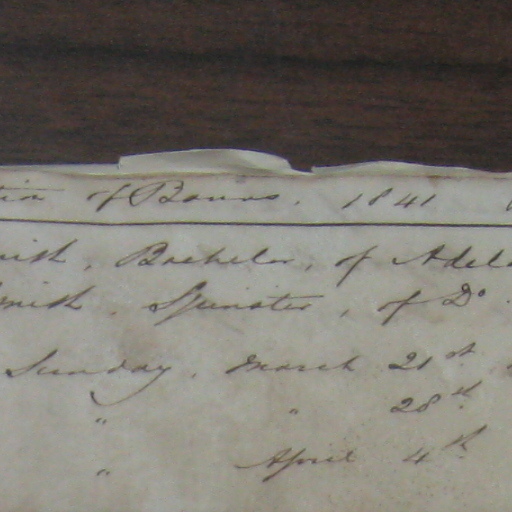 tion of Banns. 1841
mith, Bachelor, of Adela
Smith, Spinster, of Do.
Sunday, March 21st
" " 28th
" April 4th